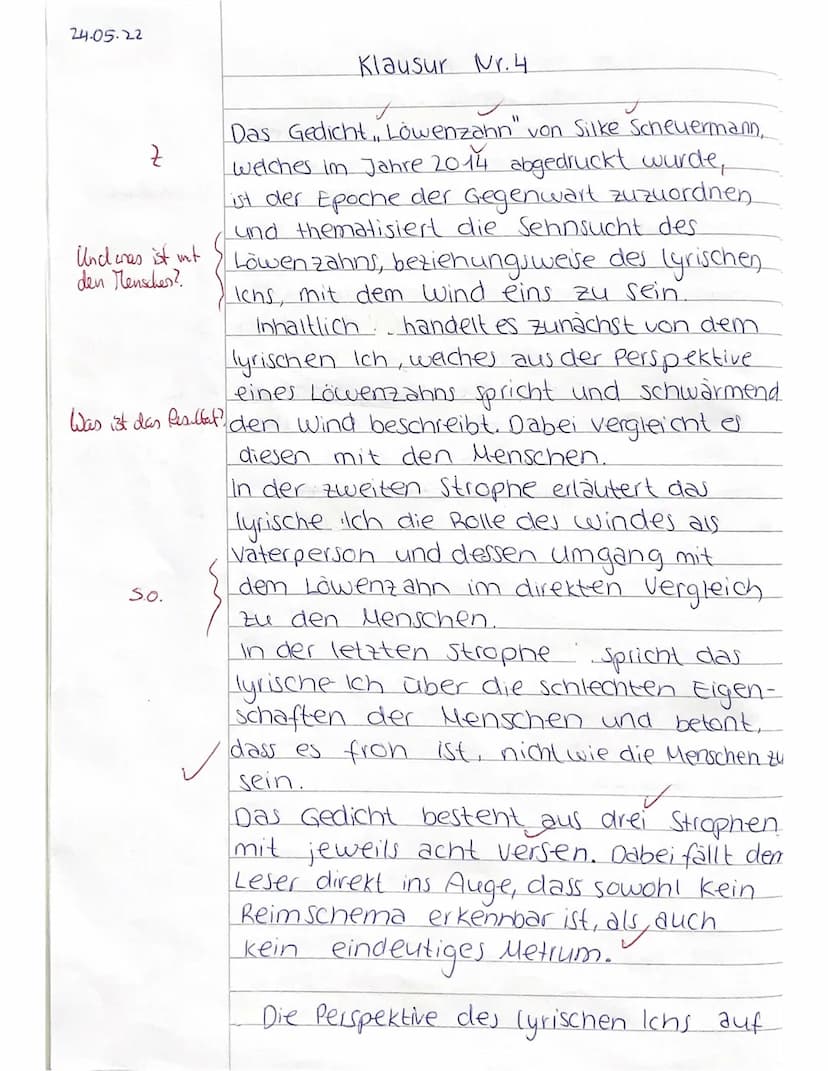 24.05.22
Klausur Nr. 4
Das Gedicht „Löwenzahn" von Silke Scheuermann,
z
welches im Jahre 2014 abgedruckt wurde,
ist der Epoche der Gegenwart zuzuordnen
und thematisiert die Sehnsucht des
Und was ist mit
den Menschen?
Löwenzahns, beziehungsweise des lyrischen
Ichs, mit dem Wind eins zu sein.
Inhaltlich handelt es zunächst von dem
lyrischen Ich, welches aus der Perspektive
eines Löwenzahns spricht und schwärmend
Was ist das Resultat?
den Wind beschreibt. Dabei vergleicht es
diesen mit den Menschen.
In der zweiten Strophe erläutert das
lyrische Ich die Rolle des Windes als
Vaterperson und dessen Umgang mit
s.o.
dem Löwenzahn im direkten Vergleich
zu den Menschen.
In der letzten Strophe spricht das
lyrische Ich über die schlechten Eigen-
schaften der Menschen und betont,
dass es froh ist, nicht wie die Menschen zu
sein.
Das Gedicht besteht aus drei Strophen
mit jeweils acht Versen. Dabei fällt dem
Leser direkt ins Auge, dass sowohl kein
Reimschema erkennbar ist, als auch
kein eindeutiges Metrum.
Die Perspektive des lyrischen Ichs auf